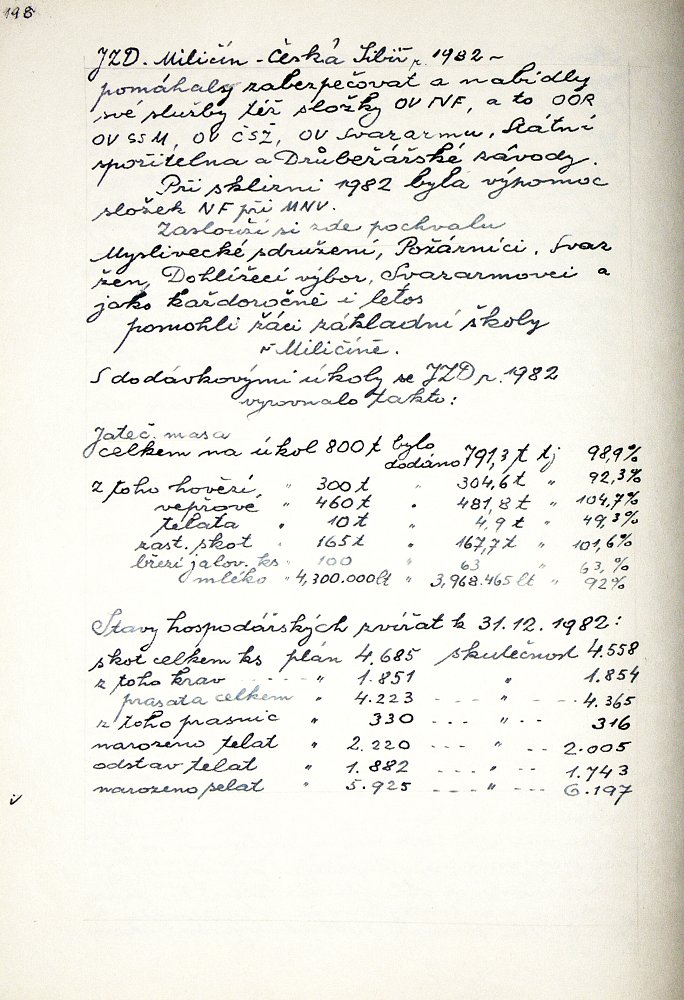 198
JZD. Miličín - Česká Sibiř r. 1982 -
pomáhaly zabezpečovat a nabídly
své služby též složky OV NF, a to OOR
OV SSM, OV ČSŽ, OV Svazarmu, Státní
spořitelna a Drůbežářské závody.
Při sklizni 1982 byla výpomoc
složek NF při MNV.
Zaslouží si zde pochvalu
Myslivecké sdružení, Požárníci, Svaz
žen, Dohlížecí výbor, Svazarmovci a
jako každoročně i letos
pomohli žáci základní školy
v Miličíně.
S dodávkovými úkoly se JZD r. 1982
vyrovnalo takto:
Jateč. masa
celkem na úkol 800 t bylo dodáno 791,3 t tj 98,9%
z toho hovězí, " 300 t " 304,6 t " 92,3%
vepřové " 460 t " 481,8 t " 104,7%
telata " 10 t " 4,9 t " 49,3%
zást. skot " 165 t " 167,7 t " 101,6%
březí jalov. ks " 100 " 63 " 63,%
mléko " 4,300.000 lt " 3,968.465 lt " 92%
Stavy hospodářských zvířat k 31.12. 1982:
skot celkem ks plán 4.685 skutečnost 4.558
z toho krav - - - - " 1.851 " 1.854
prasata celkem " 4.223 - - - " - - - 4.365
z toho prasnic " 330 - - - " - - 316
narozeno telat " 2.220 - - - " - - 2.005
odstav telat " 1.882 - - - - " - - - 1.743
narozeno selat " 5.925 - - - " - - - 6.197